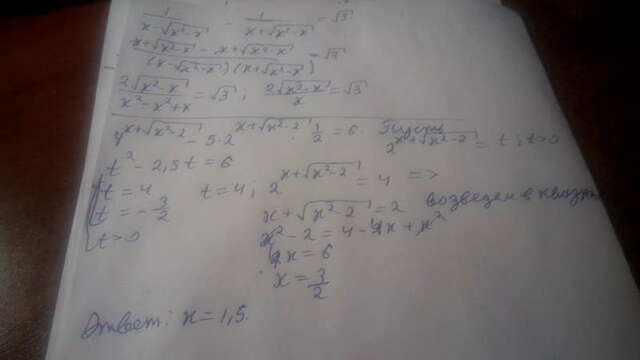 1/(x-√(x²-x)) - 1/(x+√(x²-x)) = √3
(x+√(x²-x) - x+√(x²-x))/((x-√(x²-x))(x+√(x²-x))) = √3
2√(x²-x)/(x²-x²+x) = √3 ; 2√(x²-x)/x = √3
4^(x+√(x²-2)) - 5·2^(x+√(x²-2)) · 1/2 = 6. Пусть 2^(x+√(x²-2)) = t, t>0
t² - 2,5t = 6
t = 4 t = 4; 2^(x+√(x²-2)) = 4 =>
t = -3/2
t>0
x+√(x²-2) = 2 возведем в квадрат
x² - 2 = 4 - 4x + x²
4x = 6
x = 3/2
Ответ: x = 1,5.